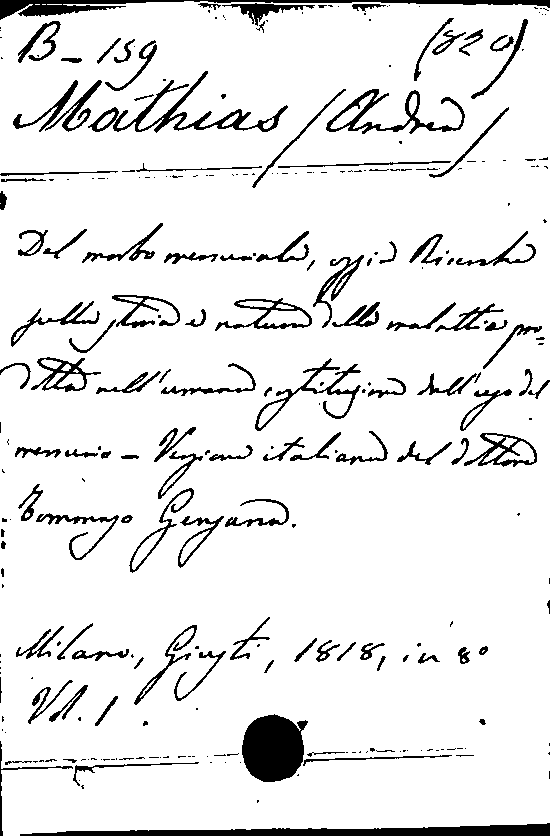 B-159 (820)
Mathias (Andrea)
Del morbo mercuriale, ossia Ricerche
sulla storia e natura della malattia pro=
dotta nell'umana costituzione dall'uso del
mercurio - Versione italiana del dottore
Tommaso Gensana.
Milano, Giusti, 1818, in 8°
Vol. 1.